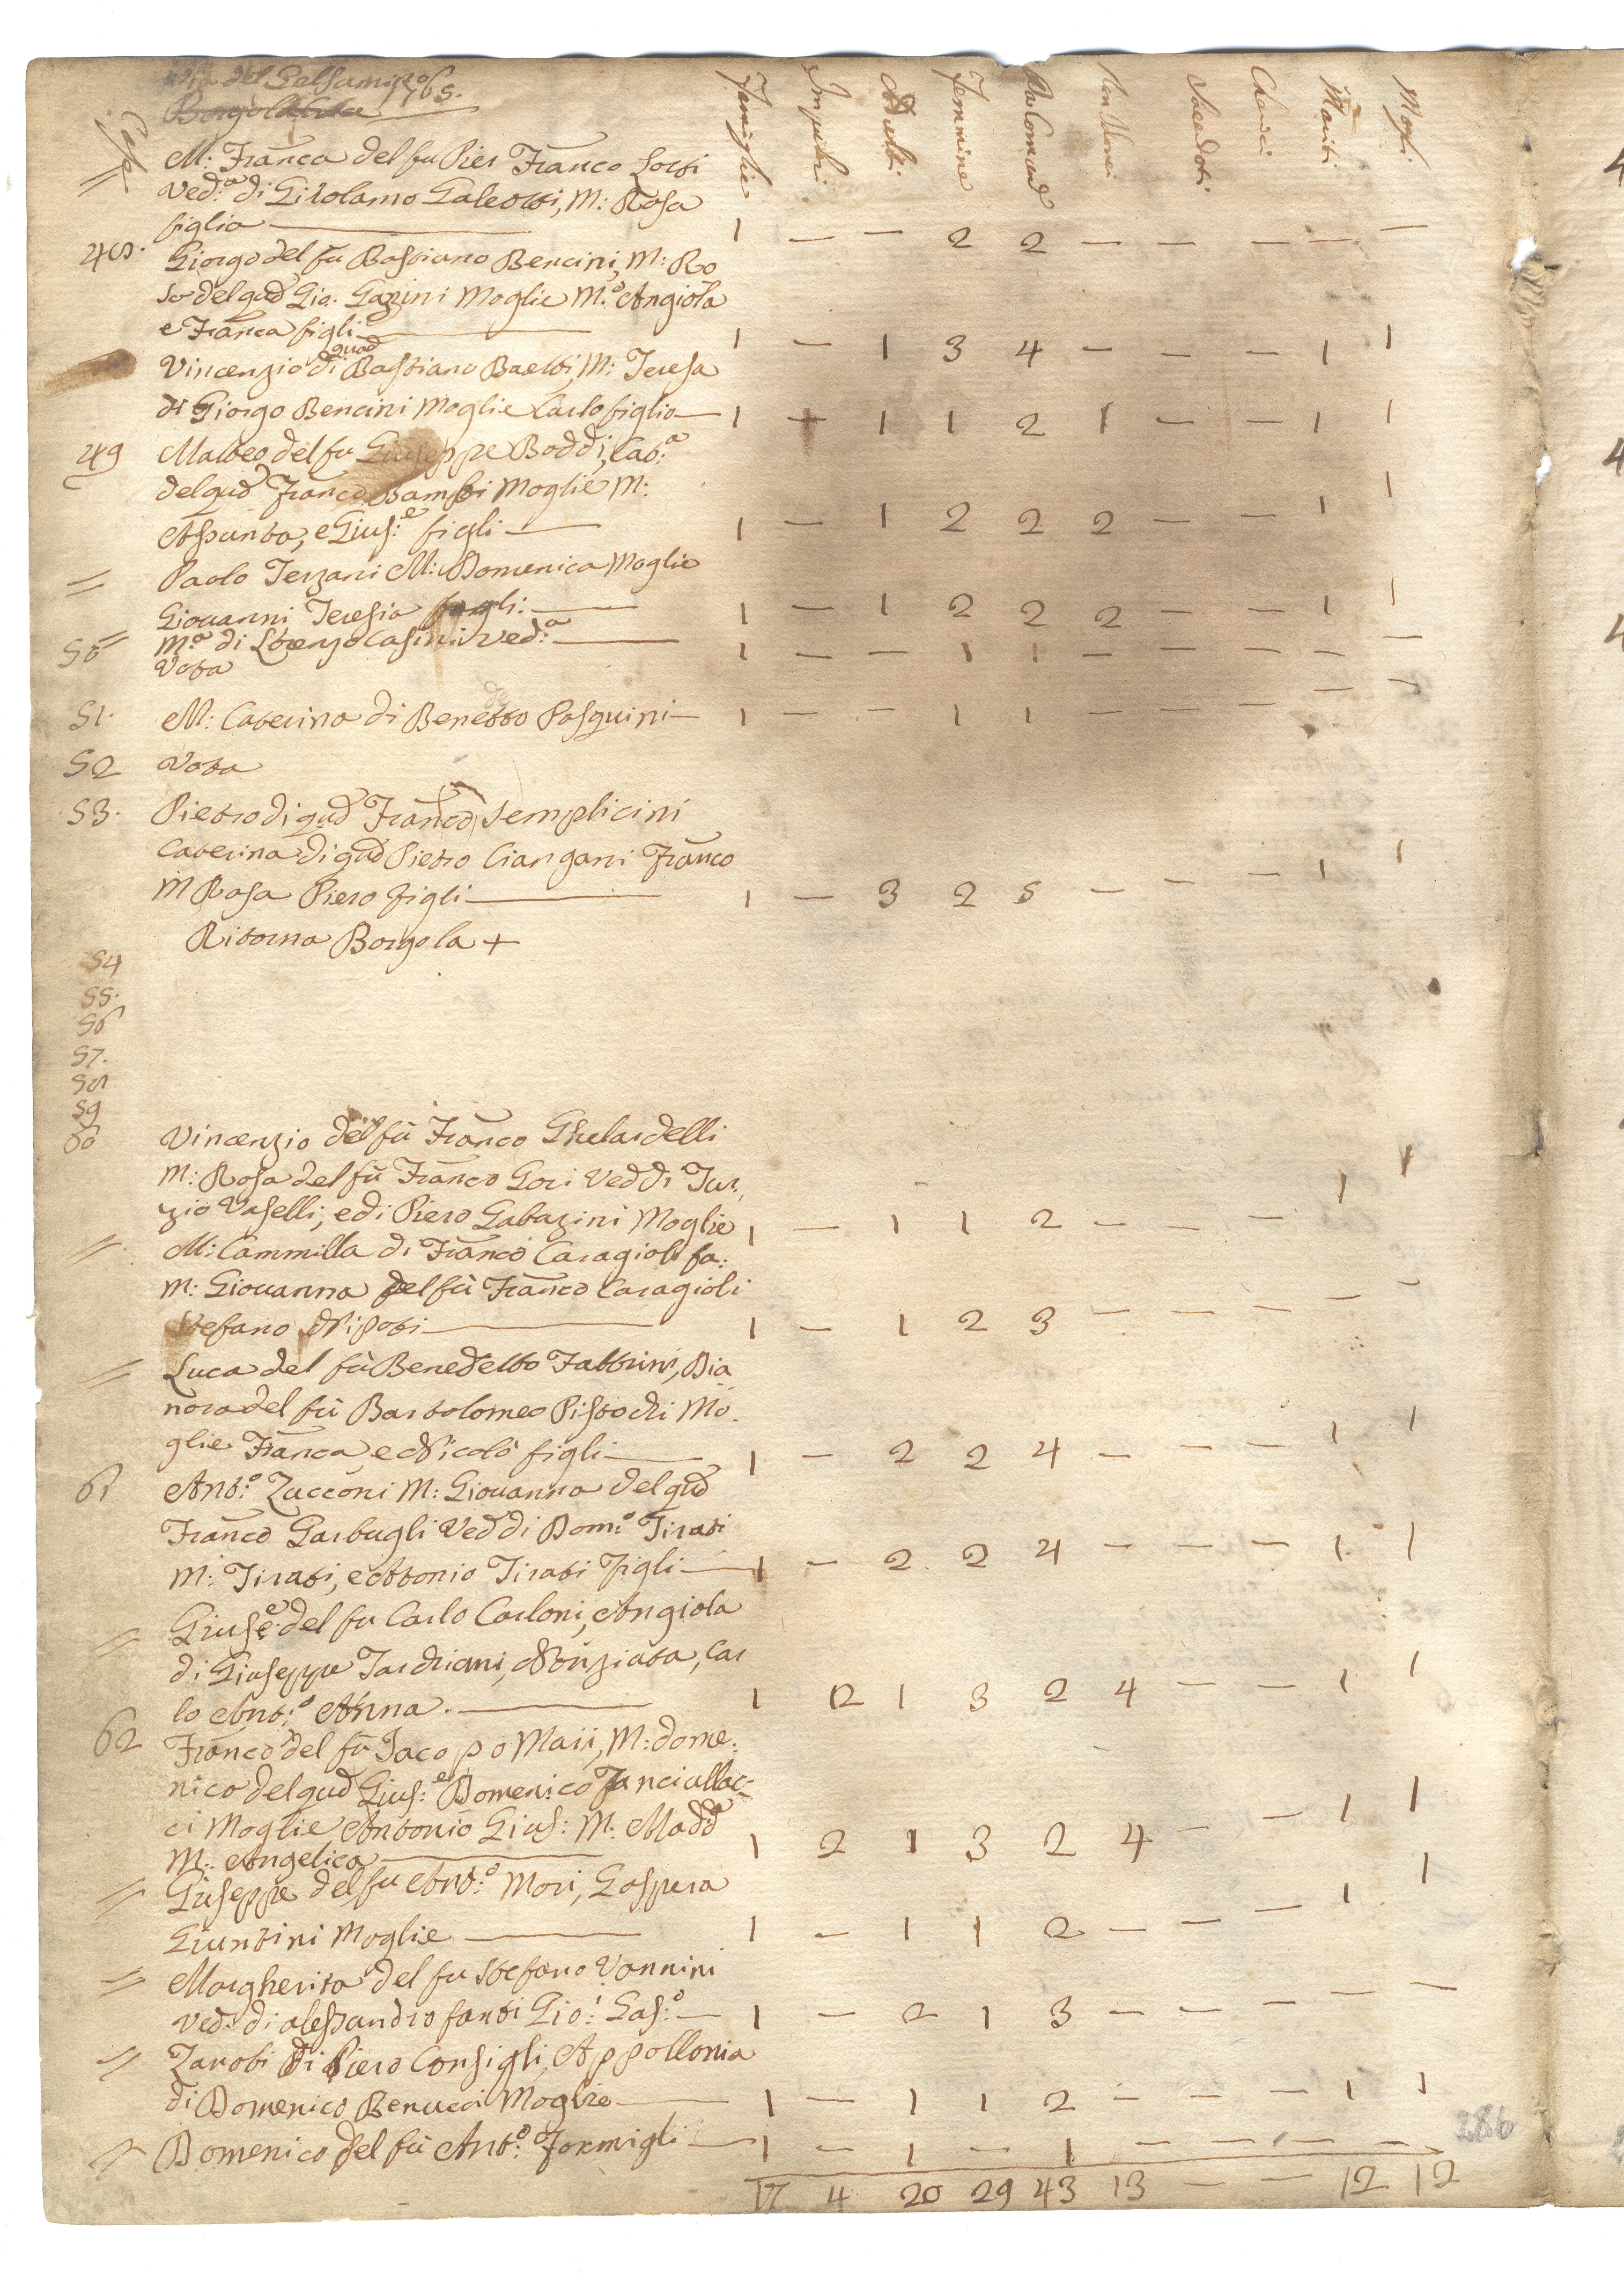 Via del Gelsomino 1765.
Borgolaleta
Case
Famiglie Impuberi Adulti Femmine Da Comund Non Com: Sacerdoti Cherici Mariti Mogli
= M: Franca del fu Pier Franco Lotti
Ved:a di Girolamo Galeotti, M: Rosa
figlia — 1 — — 2 2 — — — — —
48. Giorgo del fu Bastiano Bencini, M: Ro
sa del qud Gio. Gazini Moglie M.a Angiola
e Franca figli — 1 — 1 3 4 — — — 1 1
Vincenzio di quod Bastiano Baetti, M: Teresa
di Giorgo Bencini Moglie Carlo figlio — 1 + 1 1 2 1 — — 1 1
49 Matteo del fu Giuseppe Boddi, Cat:a
del qud Franco Bambi Moglie M:
Assunta, e Gius:e figli — 1 — 1 2 2 2 — — 1 1
= Paolo Terzani M: Domenica Moglie
Giovanni Teresia figli: — 1 — 1 2 2 2 — — 1 1
50 = M:a di Lorenzo Casini ved:a — 1 — — 1 1 — — — — —
Vota
51. M: Caterina di Benetto Pasquini — 1 — — 1 1 — — — — —
52 Vota
53. Pietro di qud Franco Semplicini
Caterina di qud Pietro Ciangani Franco
M Rosa Piero figli — 1 — 3 2 5 — — — 1 1
Ritorna Borgola +
54
55.
56
57.
58
59
60 Vincenzio del fu Franco Ghelardelli
M: Rosa del fu Franco Gori Ved di Tur,
zio Vaselli, e di Piero Gabazini Moglie 1 — 1 1 2 — — — 1 1
= M: Cammilla di Franco Caragioli fa:
M: Giovanna del fu Franco Caragioli
Stefano Nipoti — 1 — 1 2 3 — — — — —
= Luca del fu Benedetto Fabbrini, Dia
nora del fu Bartolomeo Pistochi Mo.
glie Franca e Nicolò figli — 1 — 2 2 4 — — — 1 1
61 Ant:o Zacconi M: Giovanna del qud
Franco Garbugli Ved di Dom:o Tirati
M: Tirati, e Attonio Tirati figli — 1 — 2 2 4 — — — 1 1
= Gius:e del fu Carlo Carloni, Angiola
di Giuseppe Tardriani, Nunziata, Car
lo Ant:o Anna. — 1 2 1 3 2 4 — — 1 1
62 Franco del fu Jacopo Maii, M: dome:
nico del qud Gius:e Domenico Fanciullac-
ci Moglie Antonio Gius: M: Madd:a
M: Angelica — 1 2 1 3 2 4 — — 1 1
= Giuseppe del fu Ant:o Mori, Gaspera
Giuntini Moglie — 1 — 1 1 2 — — — 1 1
= Margherita del fu Stefano Vannini
Ved: di alessandro fanti Gio: Gas:o — 1 — 2 1 3 — — — — —
= Zanobi di Piero Consigli, Appollonia
di Domenico Benucci Moglie — 1 — 1 1 2 — — — 1 1
= Domenico del fu Ant:o Formigli — 1 — 1 — 1 — — — — —
17 4 20 29 43 13 — — 12 12
286